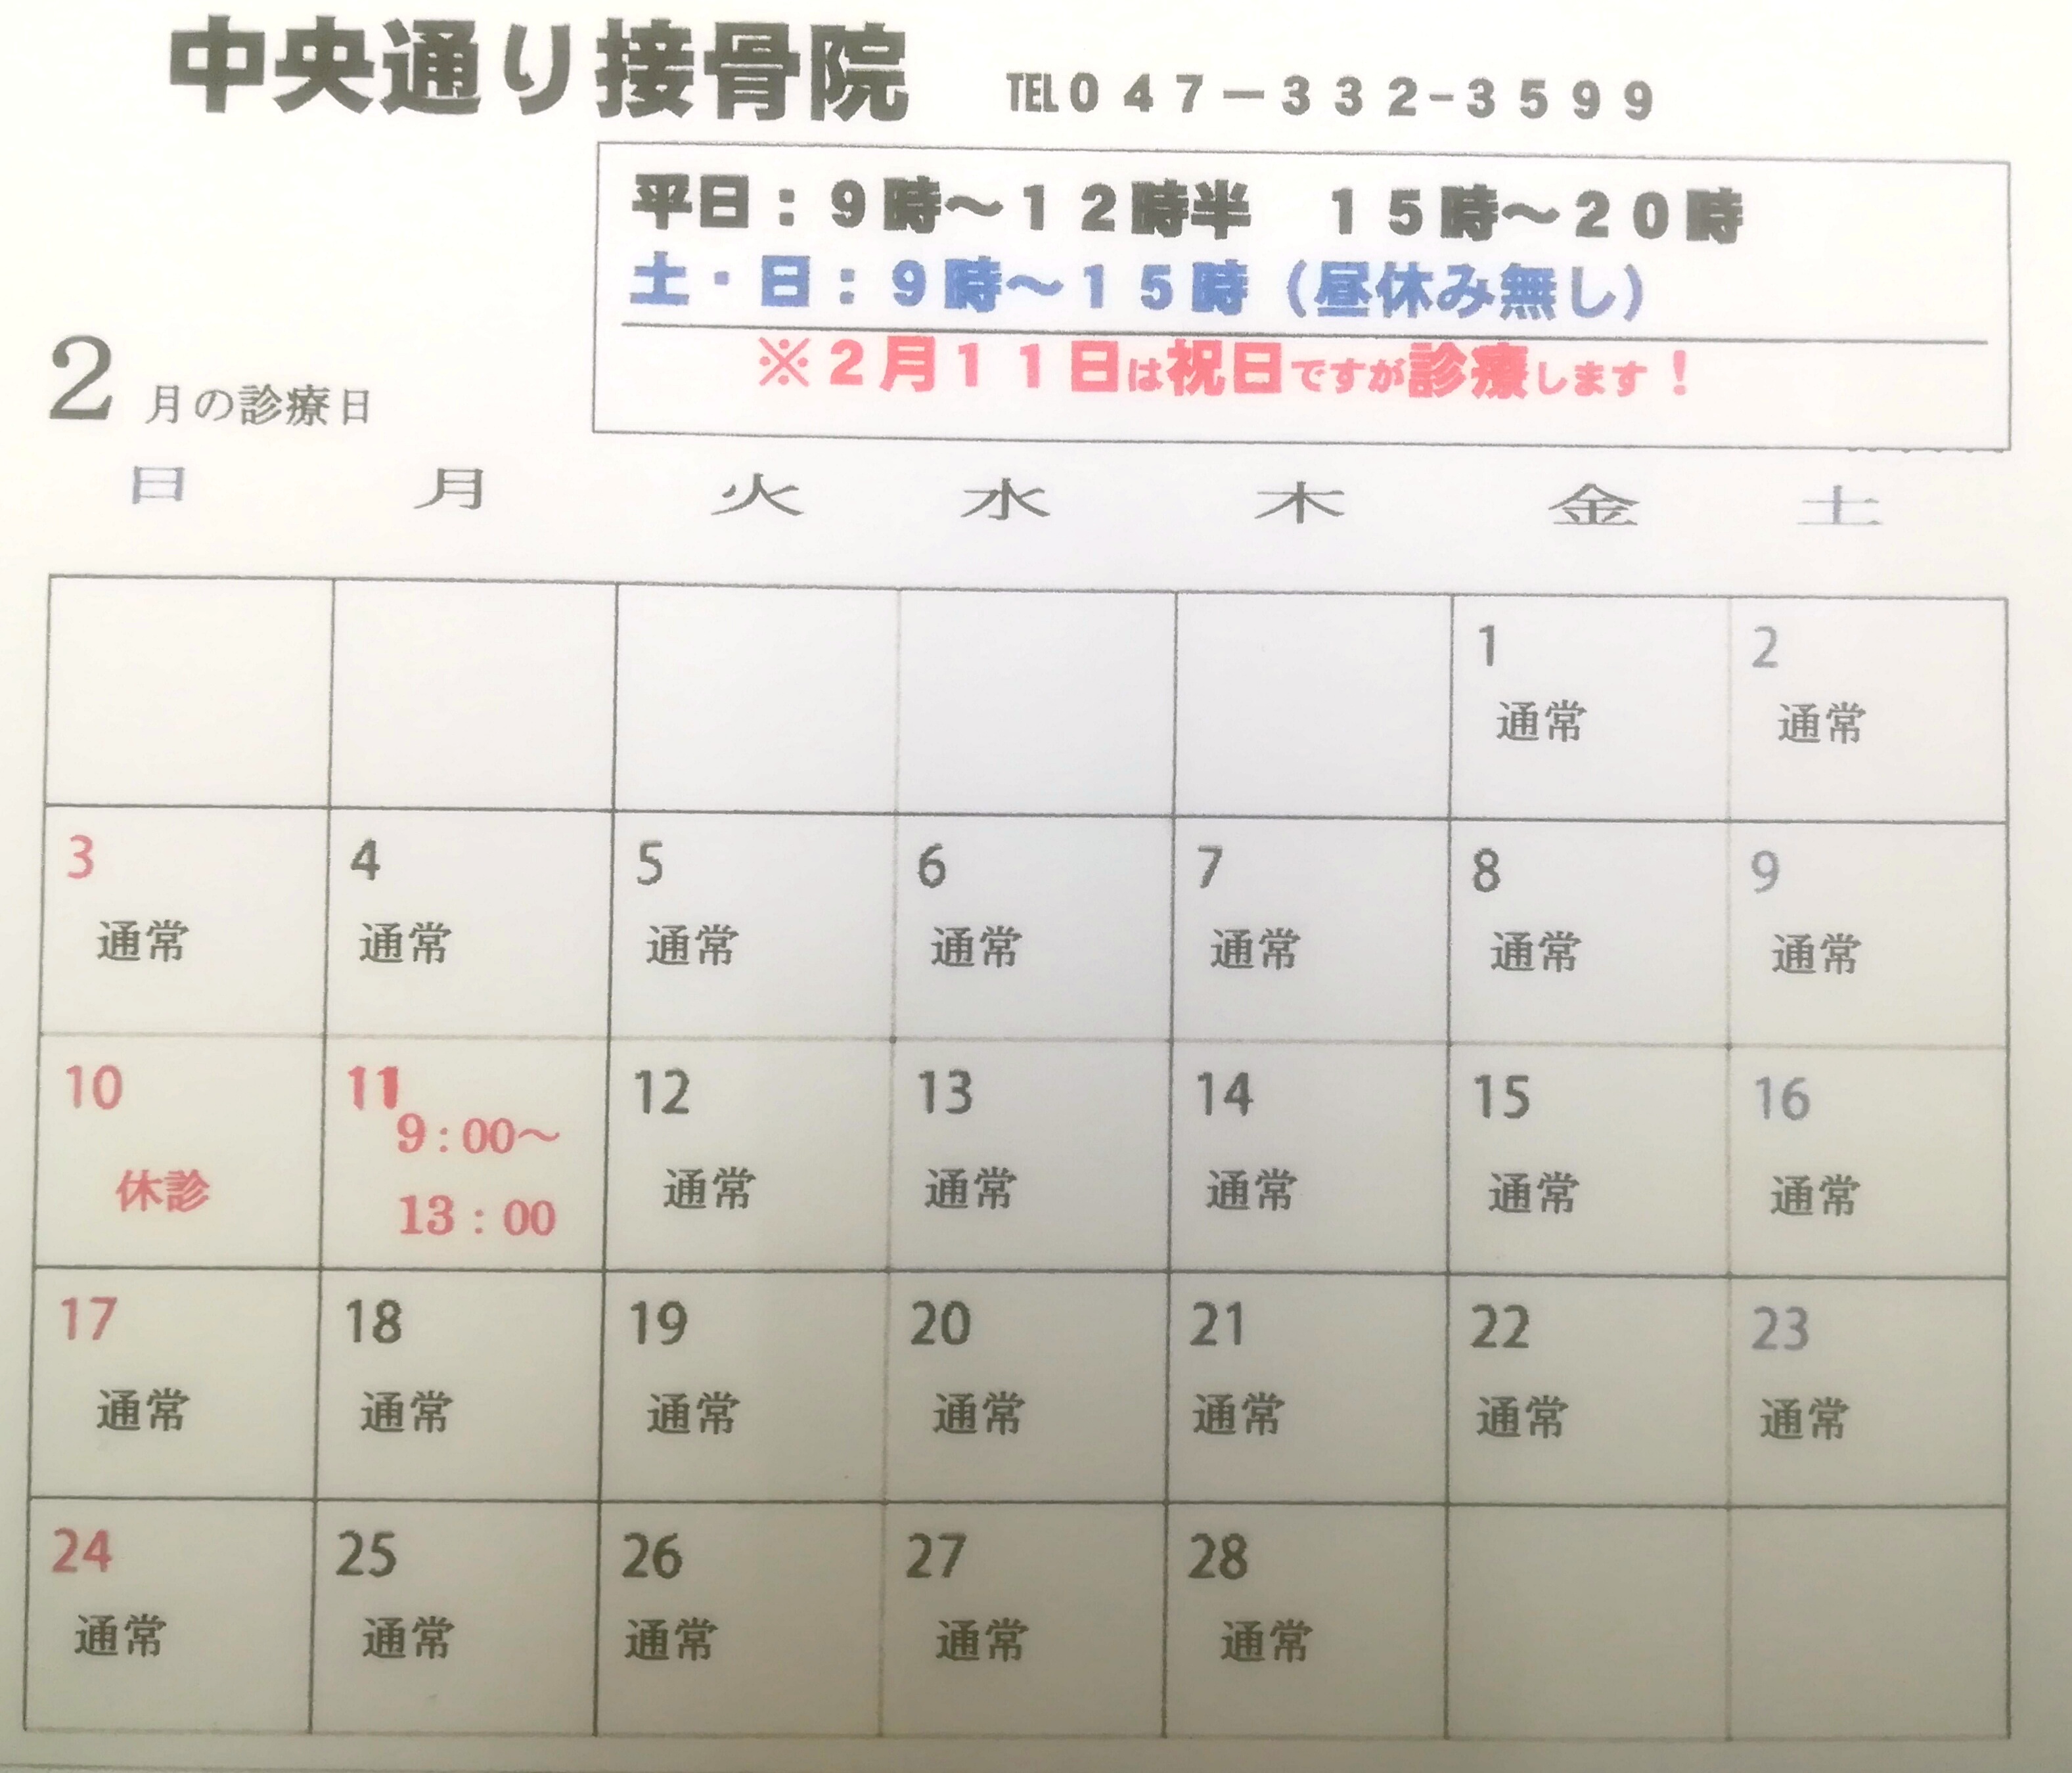 中央通り接骨院 TEL０４７－３３２-３５９９
平日：９時～１２時半　１５時～２０時
土・日：９時～１５時（昼休み無し）
※２月１１日は祝日ですが診療します！
2 月の診療日
日 月 火 水 木 金 土
1 2
通常 通常
3 4 5 6 7 8 9
通常 通常 通常 通常 通常 通常 通常
10 11 12 13 14 15 16
9:00～
休診 13:00 通常 通常 通常 通常 通常
17 18 19 20 21 22 23
通常 通常 通常 通常 通常 通常 通常
24 25 26 27 28
通常 通常 通常 通常 通常